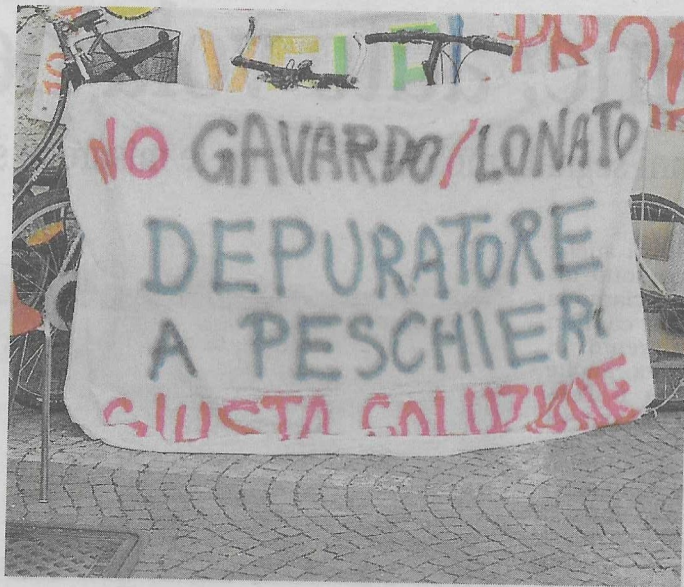 NO GAVARDO/LONATO
DEPURATORE
A PESCHIERA
GIUSTA SOLUZIONE